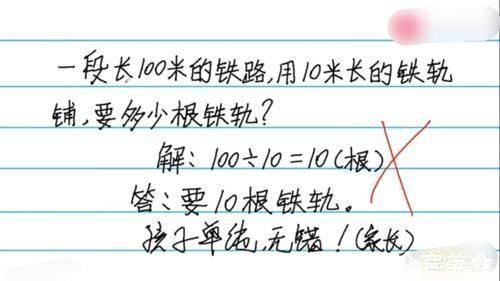 一段长100米的铁路,用10米长的铁轨
铺,要多少根铁轨?
解:100÷10=10(根)
答:要10根铁轨。
孩子单纯,无错!(家长)